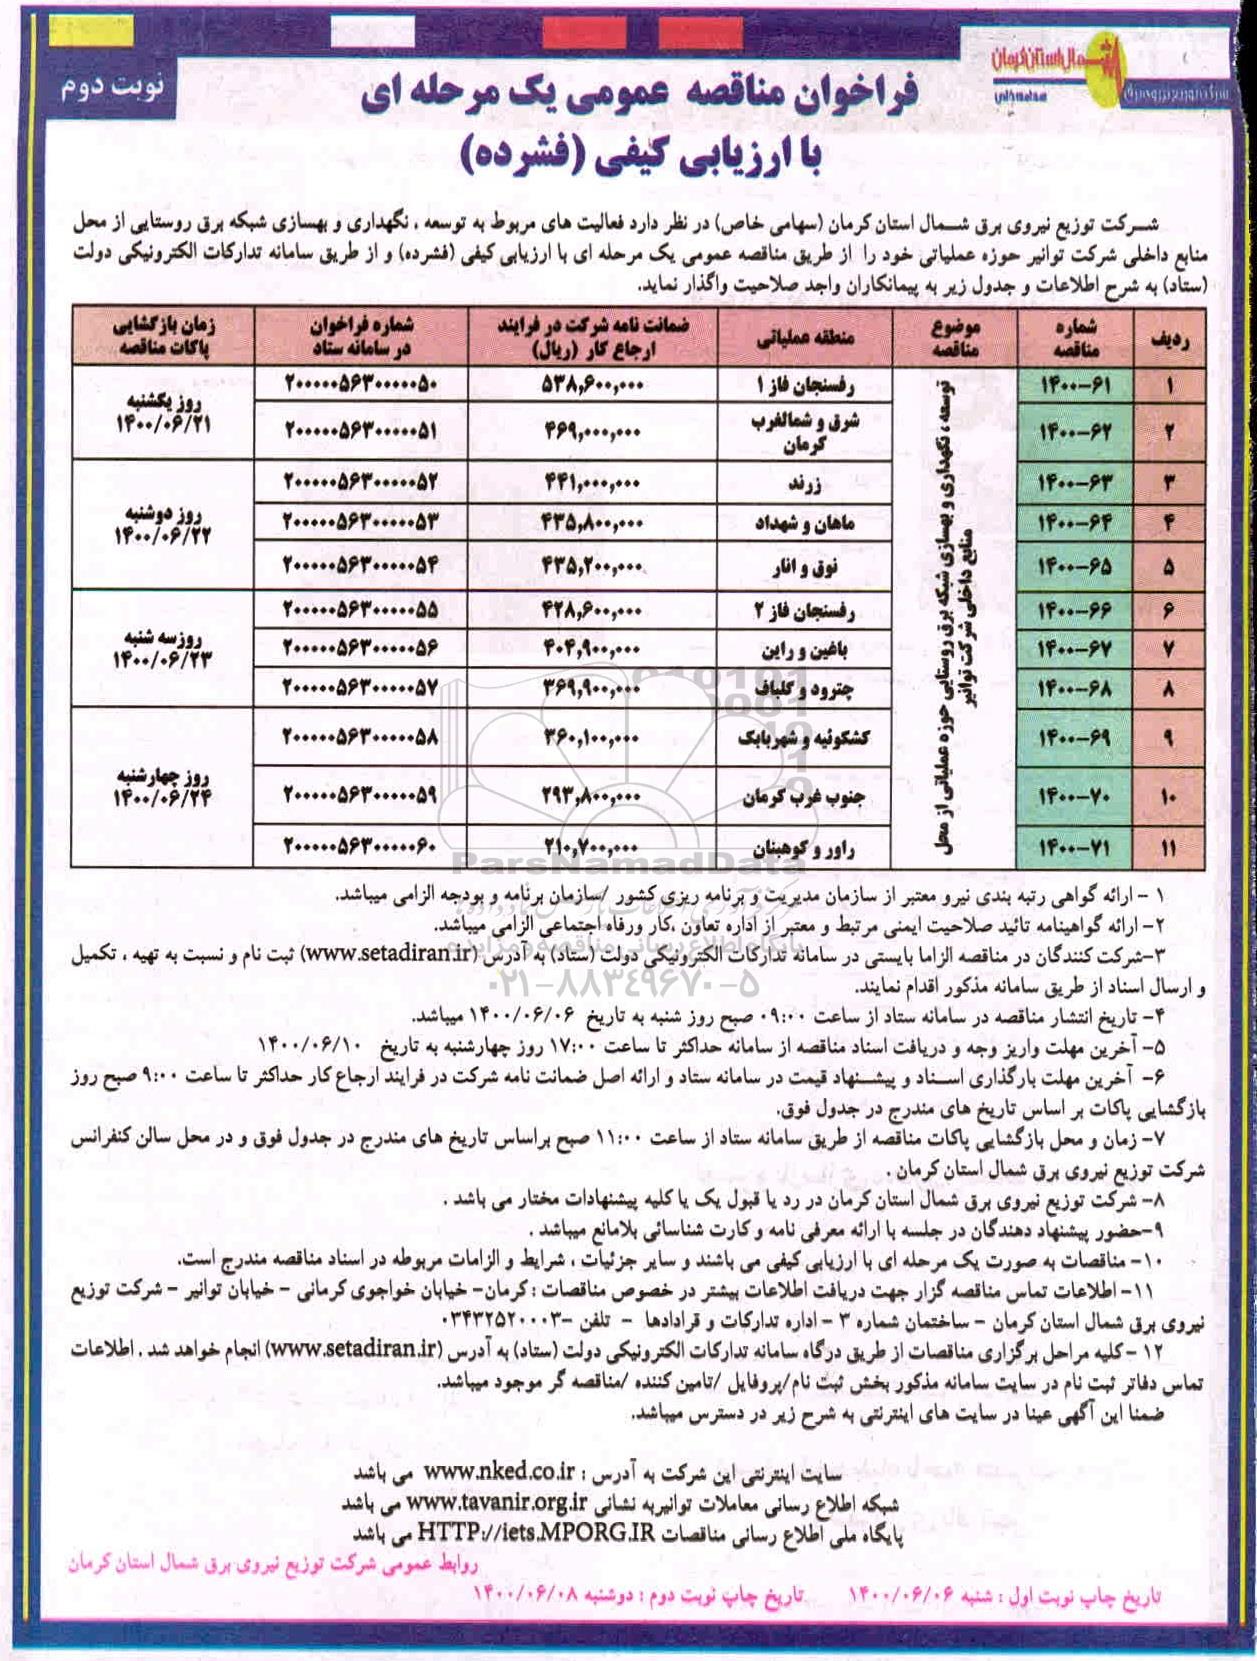 شمال استان کرمان
شرکت توزیع نیروی برق
سهامی خاص
نوبت دوم
فراخوان مناقصه عمومی یک مرحله ای
با ارزیابی کیفی (فشرده)
شرکت توزیع نیروی برق شمال استان کرمان (سهامی خاص) در نظر دارد فعالیت های مربوط به توسعه ، نگهداری و بهسازی شبکه برق روستایی از محل
منابع داخلی شرکت توانیر حوزه عملیاتی خود را از طریق مناقصه عمومی یک مرحله ای با ارزیابی کیفی (فشرده) و از طریق سامانه تدارکات الکترونیکی دولت
(ستاد) به شرح اطلاعات و جدول زیر به پیمانکاران واجد صلاحیت واگذار نماید.
ردیف | شماره مناقصه | موضوع مناقصه | منطقه عملیاتی | ضمانت نامه شرکت در فرایند ارجاع کار (ریال) | شماره فراخوان در سامانه ستاد | زمان بازگشایی پاکات مناقصه
توسعه ، نگهداری و بهسازی شبکه برق روستایی حوزه عملیاتی از محل
منابع داخلی شرکت توانیر
۱ | ۱۴۰۰-۶۱ | رفسنجان فاز ۱ | ۵۳۸,۶۰۰,۰۰۰ | ۲۰۰۰۰۰۵۶۳۰۰۰۰۰۵۰ | روز یکشنبه ۱۴۰۰/۰۶/۲۱
۲ | ۱۴۰۰-۶۲ | شرق و شمالغرب کرمان | ۴۶۹,۰۰۰,۰۰۰ | ۲۰۰۰۰۰۵۶۳۰۰۰۰۰۵۱
۳ | ۱۴۰۰-۶۳ | زرند | ۴۴۱,۰۰۰,۰۰۰ | ۲۰۰۰۰۰۵۶۳۰۰۰۰۰۵۲ | روز دوشنبه ۱۴۰۰/۰۶/۲۲
۴ | ۱۴۰۰-۶۴ | ماهان و شهداد | ۴۳۵,۸۰۰,۰۰۰ | ۲۰۰۰۰۰۵۶۳۰۰۰۰۰۵۳
۵ | ۱۴۰۰-۶۵ | نوق و انار | ۴۳۵,۲۰۰,۰۰۰ | ۲۰۰۰۰۰۵۶۳۰۰۰۰۰۵۴
۶ | ۱۴۰۰-۶۶ | رفسنجان فاز ۲ | ۴۲۸,۶۰۰,۰۰۰ | ۲۰۰۰۰۰۵۶۳۰۰۰۰۰۵۵ | روز سه شنبه ۱۴۰۰/۰۶/۲۳
۷ | ۱۴۰۰-۶۷ | باغین و راین | ۴۰۴,۹۰۰,۰۰۰ | ۲۰۰۰۰۰۵۶۳۰۰۰۰۰۵۶
۸ | ۱۴۰۰-۶۸ | چترود و گلباف | ۳۶۹,۹۰۰,۰۰۰ | ۲۰۰۰۰۰۵۶۳۰۰۰۰۰۵۷
۹ | ۱۴۰۰-۶۹ | کشکوئیه و شهربابک | ۳۶۰,۱۰۰,۰۰۰ | ۲۰۰۰۰۰۵۶۳۰۰۰۰۰۵۸ | روز چهارشنبه ۱۴۰۰/۰۶/۲۴
۱۰ | ۱۴۰۰-۷۰ | جنوب غرب کرمان | ۲۹۳,۸۰۰,۰۰۰ | ۲۰۰۰۰۰۵۶۳۰۰۰۰۰۵۹
۱۱ | ۱۴۰۰-۷۱ | راور و کوهبنان | ۲۱۰,۷۰۰,۰۰۰ | ۲۰۰۰۰۰۵۶۳۰۰۰۰۰۶۰
ParsNamadData
۱ - ارائه گواهی رتبه بندی نیرو معتبر از سازمان مدیریت و برنامه ریزی کشور /سازمان برنامه و بودجه الزامی میباشد.
۲- ارائه گواهینامه تائید صلاحیت ایمنی مرتبط و معتبر از اداره تعاون ،کار ورفاه اجتماعی الزامی میباشد.
پایگاه اطلاع رسانی مناقصه و مزایده
۳-شرکت کنندگان در مناقصه الزاما بایستی در سامانه تدارکات الکترونیکی دولت (ستاد) به آدرس (www.setadiran.ir) ثبت نام و نسبت به تهیه ، تکمیل
و ارسال اسناد از طریق سامانه مذکور اقدام نمایند.
۰۲۱-۸۸۳۴۹۶۷۰-۵
۴- تاریخ انتشار مناقصه در سامانه ستاد از ساعت ۰۹:۰۰ صبح روز شنبه به تاریخ ۱۴۰۰/۰۶/۰۶ میباشد.
۵- آخرین مهلت واریز وجه و دریافت اسناد مناقصه از سامانه حداکثر تا ساعت ۱۷:۰۰ روز چهارشنبه به تاریخ ۱۴۰۰/۰۶/۱۰
۶- آخرین مهلت بارگذاری اسناد و پیشنهاد قیمت در سامانه ستاد و ارائه اصل ضمانت نامه شرکت در فرایند ارجاع کار حداکثر تا ساعت ۹:۰۰ صبح روز
بازگشایی پاکات بر اساس تاریخ های مندرج در جدول فوق.
۷- زمان و محل بازگشایی پاکات مناقصه از طریق سامانه ستاد از ساعت ۱۱:۰۰ صبح براساس تاریخ های مندرج در جدول فوق و در محل سالن کنفرانس
شرکت توزیع نیروی برق شمال استان کرمان .
۸- شرکت توزیع نیروی برق شمال استان کرمان در رد یا قبول یک یا کلیه پیشنهادات مختار می باشد .
۹-حضور پیشنهاد دهندگان در جلسه با ارائه معرفی نامه و کارت شناسائی بلامانع میباشد .
۱۰- مناقصات به صورت یک مرحله ای با ارزیابی کیفی می باشند و سایر جزئیات ، شرایط و الزامات مربوطه در اسناد مناقصه مندرج است.
۱۱- اطلاعات تماس مناقصه گزار جهت دریافت اطلاعات بیشتر در خصوص مناقصات : کرمان- خیابان خواجوی کرمانی - خیابان توانیر - شرکت توزیع
نیروی برق شمال استان کرمان - ساختمان شماره ۳ - اداره تدارکات و قرادادها - تلفن -۰۳۴۳۲۵۲۰۰۰۳
۱۲ -کلیه مراحل برگزاری مناقصات از طریق درگاه سامانه تدارکات الکترونیکی دولت (ستاد) به آدرس (www.setadiran.ir) انجام خواهد شد . اطلاعات
تماس دفاتر ثبت نام در سایت سامانه مذکور بخش ثبت نام/پروفایل /تامین کننده /مناقصه گر موجود میباشد.
ضمنا این آگهی عینا در سایت های اینترنتی به شرح زیر در دسترس میباشد.
سایت اینترنتی این شرکت به آدرس : www.nked.co.ir می باشد
شبکه اطلاع رسانی معاملات توانیربه نشانی www.tavanir.org.ir می باشد
پایگاه ملی اطلاع رسانی مناقصات HTTP://iets.MPORG.IR می باشد
روابط عمومی شرکت توزیع نیروی برق شمال استان کرمان
تاریخ چاپ نوبت اول : شنبه ۱۴۰۰/۰۶/۰۶ تاریخ چاپ نوبت دوم : دوشنبه ۱۴۰۰/۰۶/۰۸